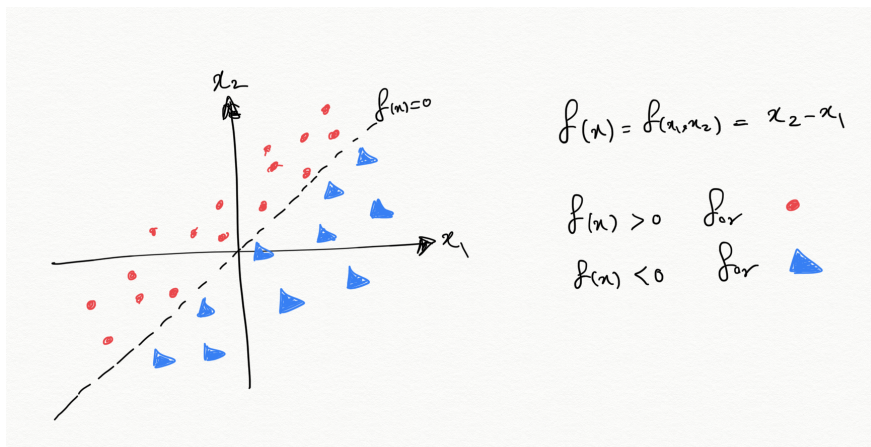 x₂
f(x)=0
x₁
f(x) = f(x₁,x₂) = x₂-x₁
f(x) >0 for
f(x) <0 for